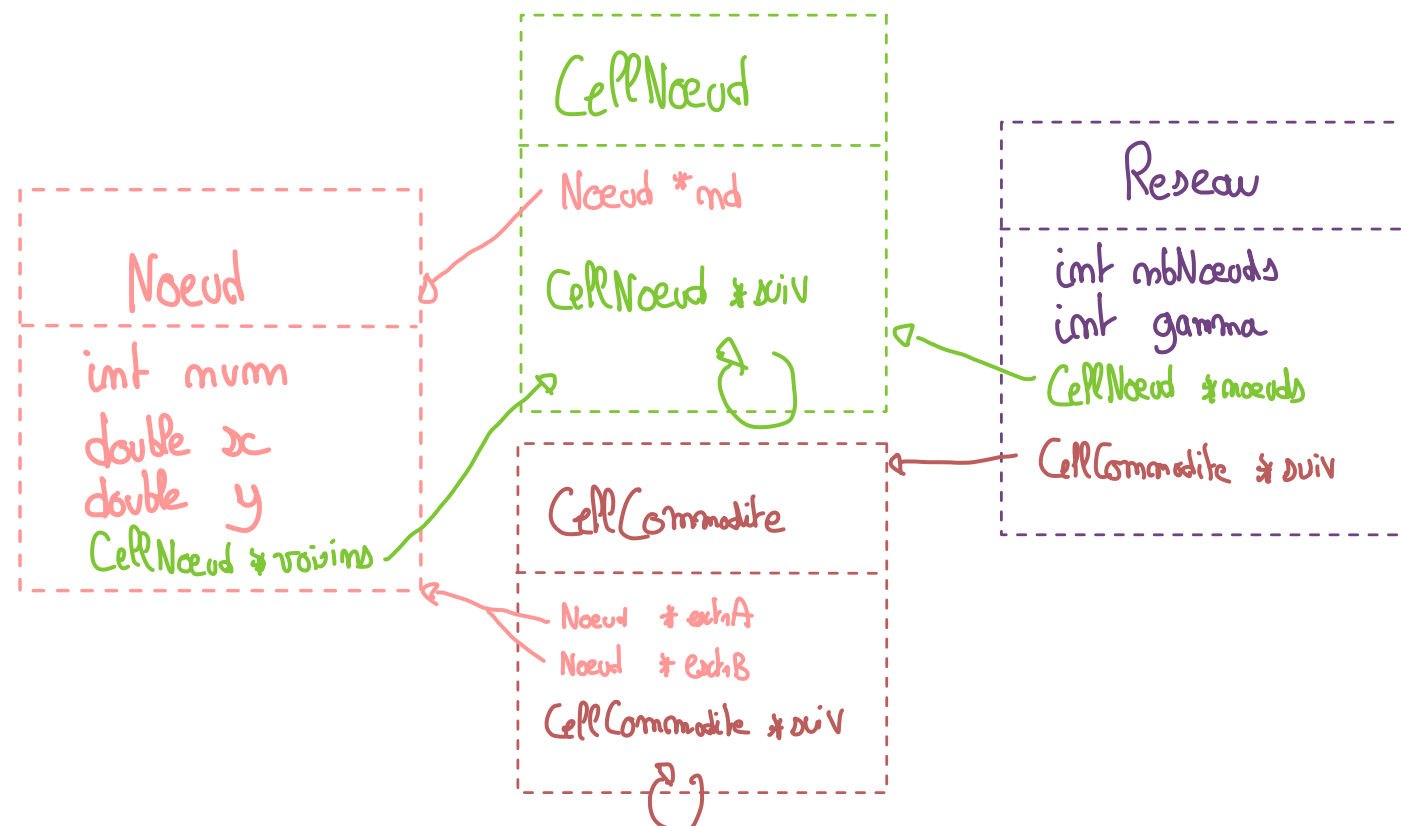 Noeud
int num
double x
double y
CellNoeud *voisins
CellNoeud
Noeud *nd
CellNoeud *suiv
CellCommodite
Noeud *extrA
Noeud *extrB
CellCommodite *suiv
Reseau
int nbNoeuds
int gamma
CellNoeud *noeuds
CellCommodite *suiv